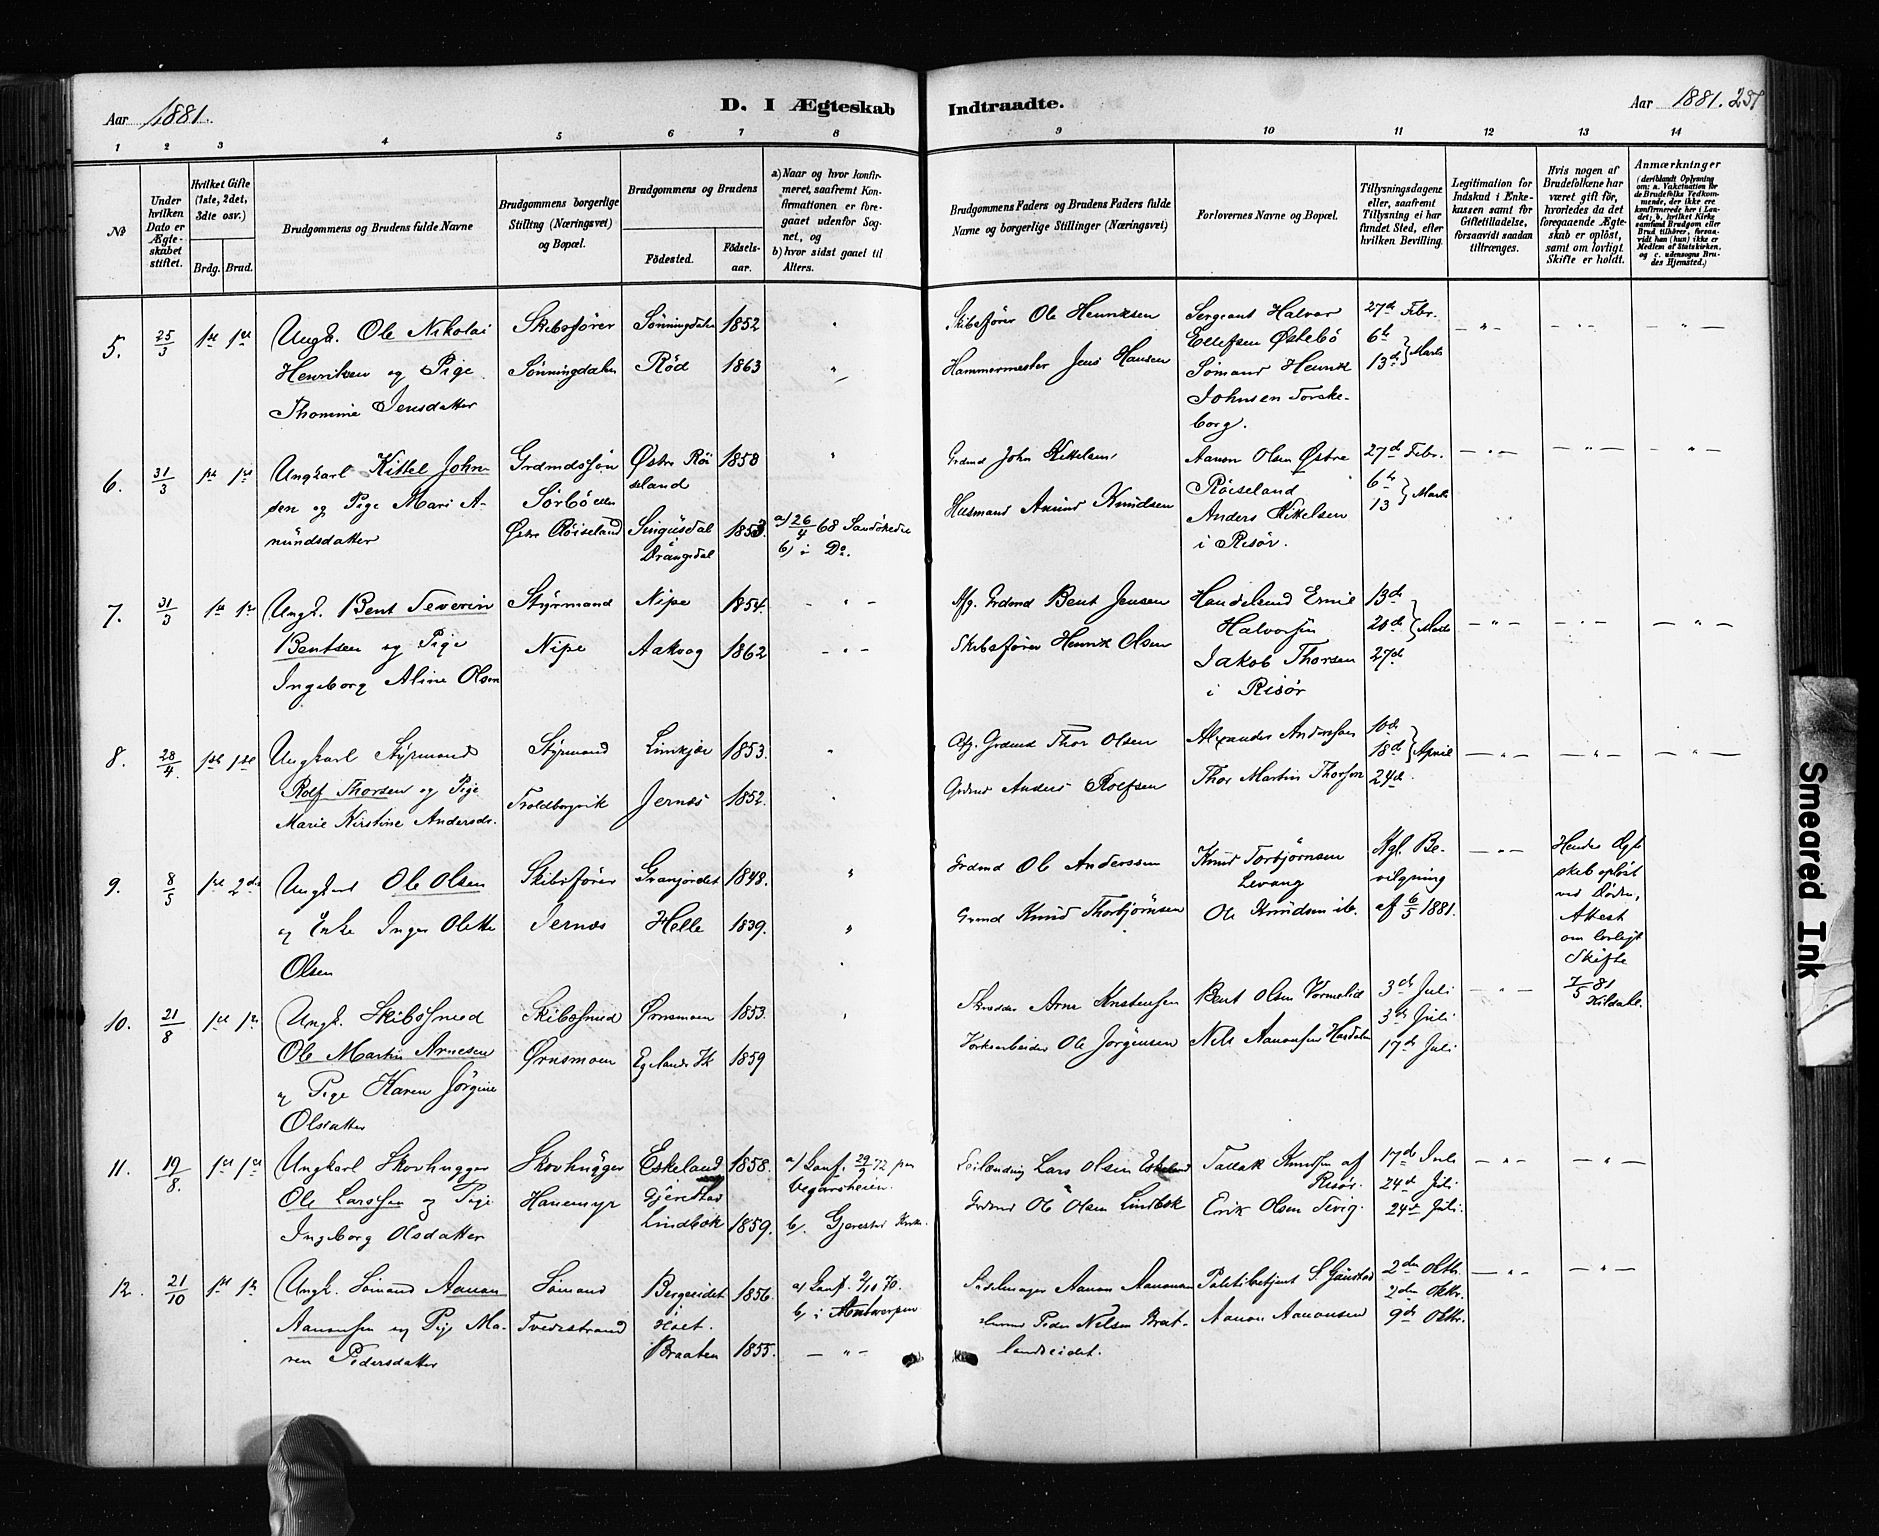 Aar 1881.
D. I Ægteskab Indtraadte.
Aar 1881. 257
1 2 3 4 5 6 7 8 9 10 11 12 13 14
No
Under hvilken Dato er Ægteskabet stiftet.
Hvilket Gifte (1ste, 2det, 3die osv.)
Brdg. Brud.
Brudgommens og Brudens fulde Navne
Brudgommens borgerlige Stilling (Næringsvei) og Bopæl.
Brudgommens og Brudens
Födested.
Födselsaar.
a) Naar og hvor konfirmeret, saafremt Konfirmationen er foregaaet udenfor Sognet, og
b) hvor sidst gaaet til Alters.
Brudgommens Faders og Brudens Faders fulde Navne og borgerlige Stillinger (Næringsvei)
Forlovernes Navne og Bopæl.
Tillysningsdagene eller, saafremt Tillysning ei har fundet Sted, efter hvilken Bevilling.
Legitimation for Indskud i Enkekassen samt for Giftetilladelse, forsaavidt saadan tiltrænges.
Hvis nogen af Brudefolkene har været gift før, hvorledes da det foregaaende Ægteskab er opløst, samt om lovligt Skifte er holdt.
Anmærkninger
(deriblandt Oplysning om: a. Vakcination for de Brudefolks Vedkommende, der ikke ere konfirmerede her i Landet; b. hvilket Kirkesamfund Brudgom eller Brud tilhører, forsaavidt han (hun) ikke er Medlem af Statskirken, og c. udensogns Brudes Hjemsted.)
5. 25/3 1ste 1ste
Ungk. Ole Nikolai
Henriksen og Pige
Thomine Jensdatter
Skibsfører
Sønningdalen
Sønningdalen 1852
Röd 1863
Skibsfører Ole Henriksen
Hammermester Jens Hansen
Sergeant Halvor
Ellefsen Østebö
Sömand Henrik
Johnsen Torskeborg.
27de Febr.
6te
13de } Marts
6. 31/3 1ste 1ste
Ungkarl Kittel Johnsen
og Pige Mari Amundsdatter
Grdmdssøn
Sörbö eller
Østre Röiseland
Østre Röiseland 1858
Singusdal i Drangedal 1853
a) 26/4 68 Sandökedal
b) i Do.
Grdmd John Kittelsen
Husmand Amund Knudsen
Aanon Olsen Østre
Röiseland
Anders Kittelsen
i Risör.
27de Febr.
6te
13 } Marts
7. 31/3 1ste 1ste
Ungk. Bent Severin
Bentsen og Pige
Ingeborg Aline Olsen
Styrmand
Nipe
Nipe 1854.
Aakvag 1862
Afg. Grdmd Bent Jensen
Skibsfører Henrik Olsen
Halvorsen
Jakob Thorsen
i Risör
13de
20de } Marts
27de
8. 28/4. 1ste 1ste
Ungkarl Styrmand
Rolf Thorsen og Pige
Marie Kirstine Andersdr.
Styrmand
Troldbergvik
Limkjær 1853.
Jernæs 1852.
Afg. Grdmd Thor Olsen
Grdmd Anders Rolfsen
Alexander Anderssen
Thor Martin Thorsen
10de
18de } April
24de.
9. 8/5 1ste 2det
Ungkarl Ole Olsen
og Enke Inger Olette
Olsen
Skibsfører
Jernæs
Granjordet 1848.
Helle 1839.
Grdmd Ole Anderssen
Grmd Knud Thorbjørnsen
Knud Torbjørnsen
Levang
Ole Knudsen ib.
Kgl. Bevilgning
af 6/5 1881.
Hendes Ægteskab opløst
ved Döden,
Attest
om lovligt
Skifte
7/5 81
Kildahl.
10. 21/8 1ste 1ste
Ungk. Skibssmed
Ole Martin Arnesen
og Pige Karen Jörgine
Olsdatter
Skibssmed
Ørnsmoen
Ørnsmoen 1853.
Egelands Vk 1859
Arne Kristensen
Verksarbeider Ole Jörgensen
Bent Olsen Vormelid
Nels Aanonsen Hasdalen
3de Juli
3de Juli
17de Juli
11. 19/8. 1ste 1ste
Ungkarl Skovhugger
Ole Larssen og Pige
Ingeborg Olsdatter
Skovhugger
Hanemyr
Eskeland 1858.
Gjerestad
Lindbæk 1859.
a) Konf. 29/9 72 paa
Vegarsheien.
b). Gjerestad Kirke.
Leilænding Lars Olsen Eskeland
Grdmd Ole Olsen Lindbæk
Tallak Knudsen af
Risör.
Erik Olsen Tevig.
17de Juli
24de Juli
24de Juli.
12. 21/10 1ste 1ste
Ungk. Sömand Aanon
Aanonsen og Pige Maren Pedersdatter
Sömand
Tvedestrand
Bergseidet 1856.
Holt.
Braaten 1855.
a) Konf. 2/10 70.
b) i Antwerpen
Sadelmager Aanon Aanonsen
Husmd Peder Nelsen Bratlandseidet.
Politibetjent S. Gunstad
Aanon Aanonsen
2den Oktbr.
2den Oktbr.
9de Oktbr.
Smeared Ink